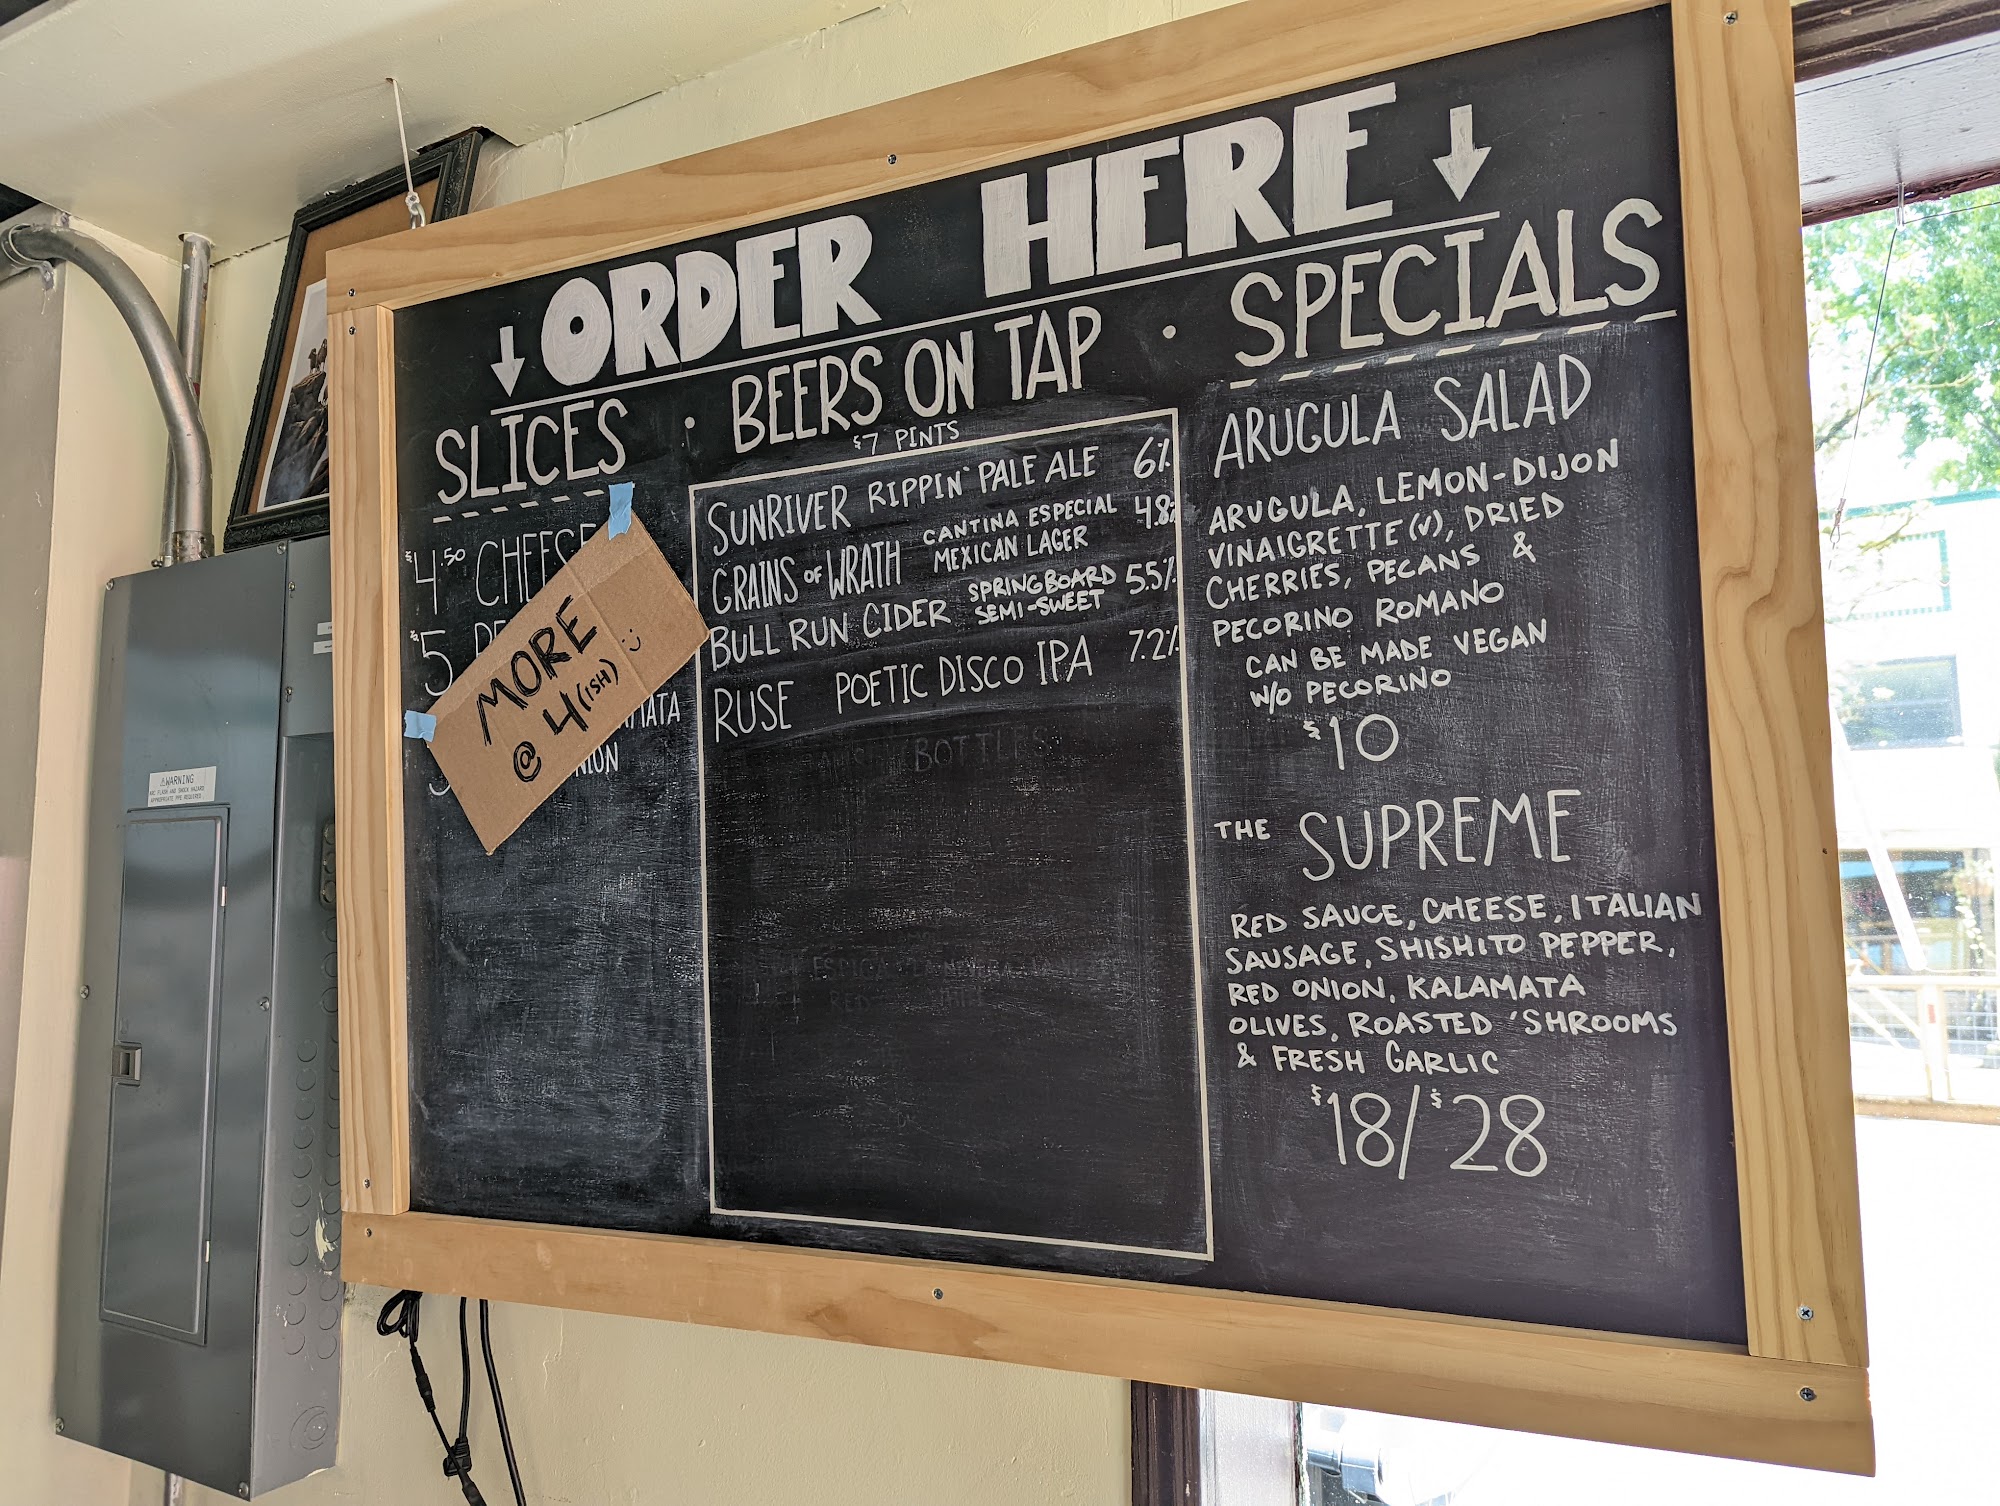 ORDER HERE
SLICES · BEERS ON TAP · SPECIALS
$4.50 CHEESE
$5
MORE
@ 4(ISH)
$7 PINTS
SUNRIVER RIPPIN' PALE ALE 6%
GRAINS OF WRATH CANTINA ESPECIAL 4.8%
MEXICAN LAGER
BULL RUN CIDER SPRINGBOARD 5.5%
SEMI-SWEET
RUSE POETIC DISCO IPA 7.2%
BOTTLES
ARUGULA SALAD
ARUGULA, LEMON-DIJON
VINAIGRETTE (V), DRIED
CHERRIES, PECANS &
PECORINO ROMANO
CAN BE MADE VEGAN
W/O PECORINO
$10
THE SUPREME
RED SAUCE, CHEESE, ITALIAN
SAUSAGE, SHISHITO PEPPER,
RED ONION, KALAMATA
OLIVES, ROASTED 'SHROOMS
& FRESH GARLIC
$18/$28
⚠WARNING
ARC FLASH AND SHOCK HAZARD
APPROPRIATE PPE REQUIRED